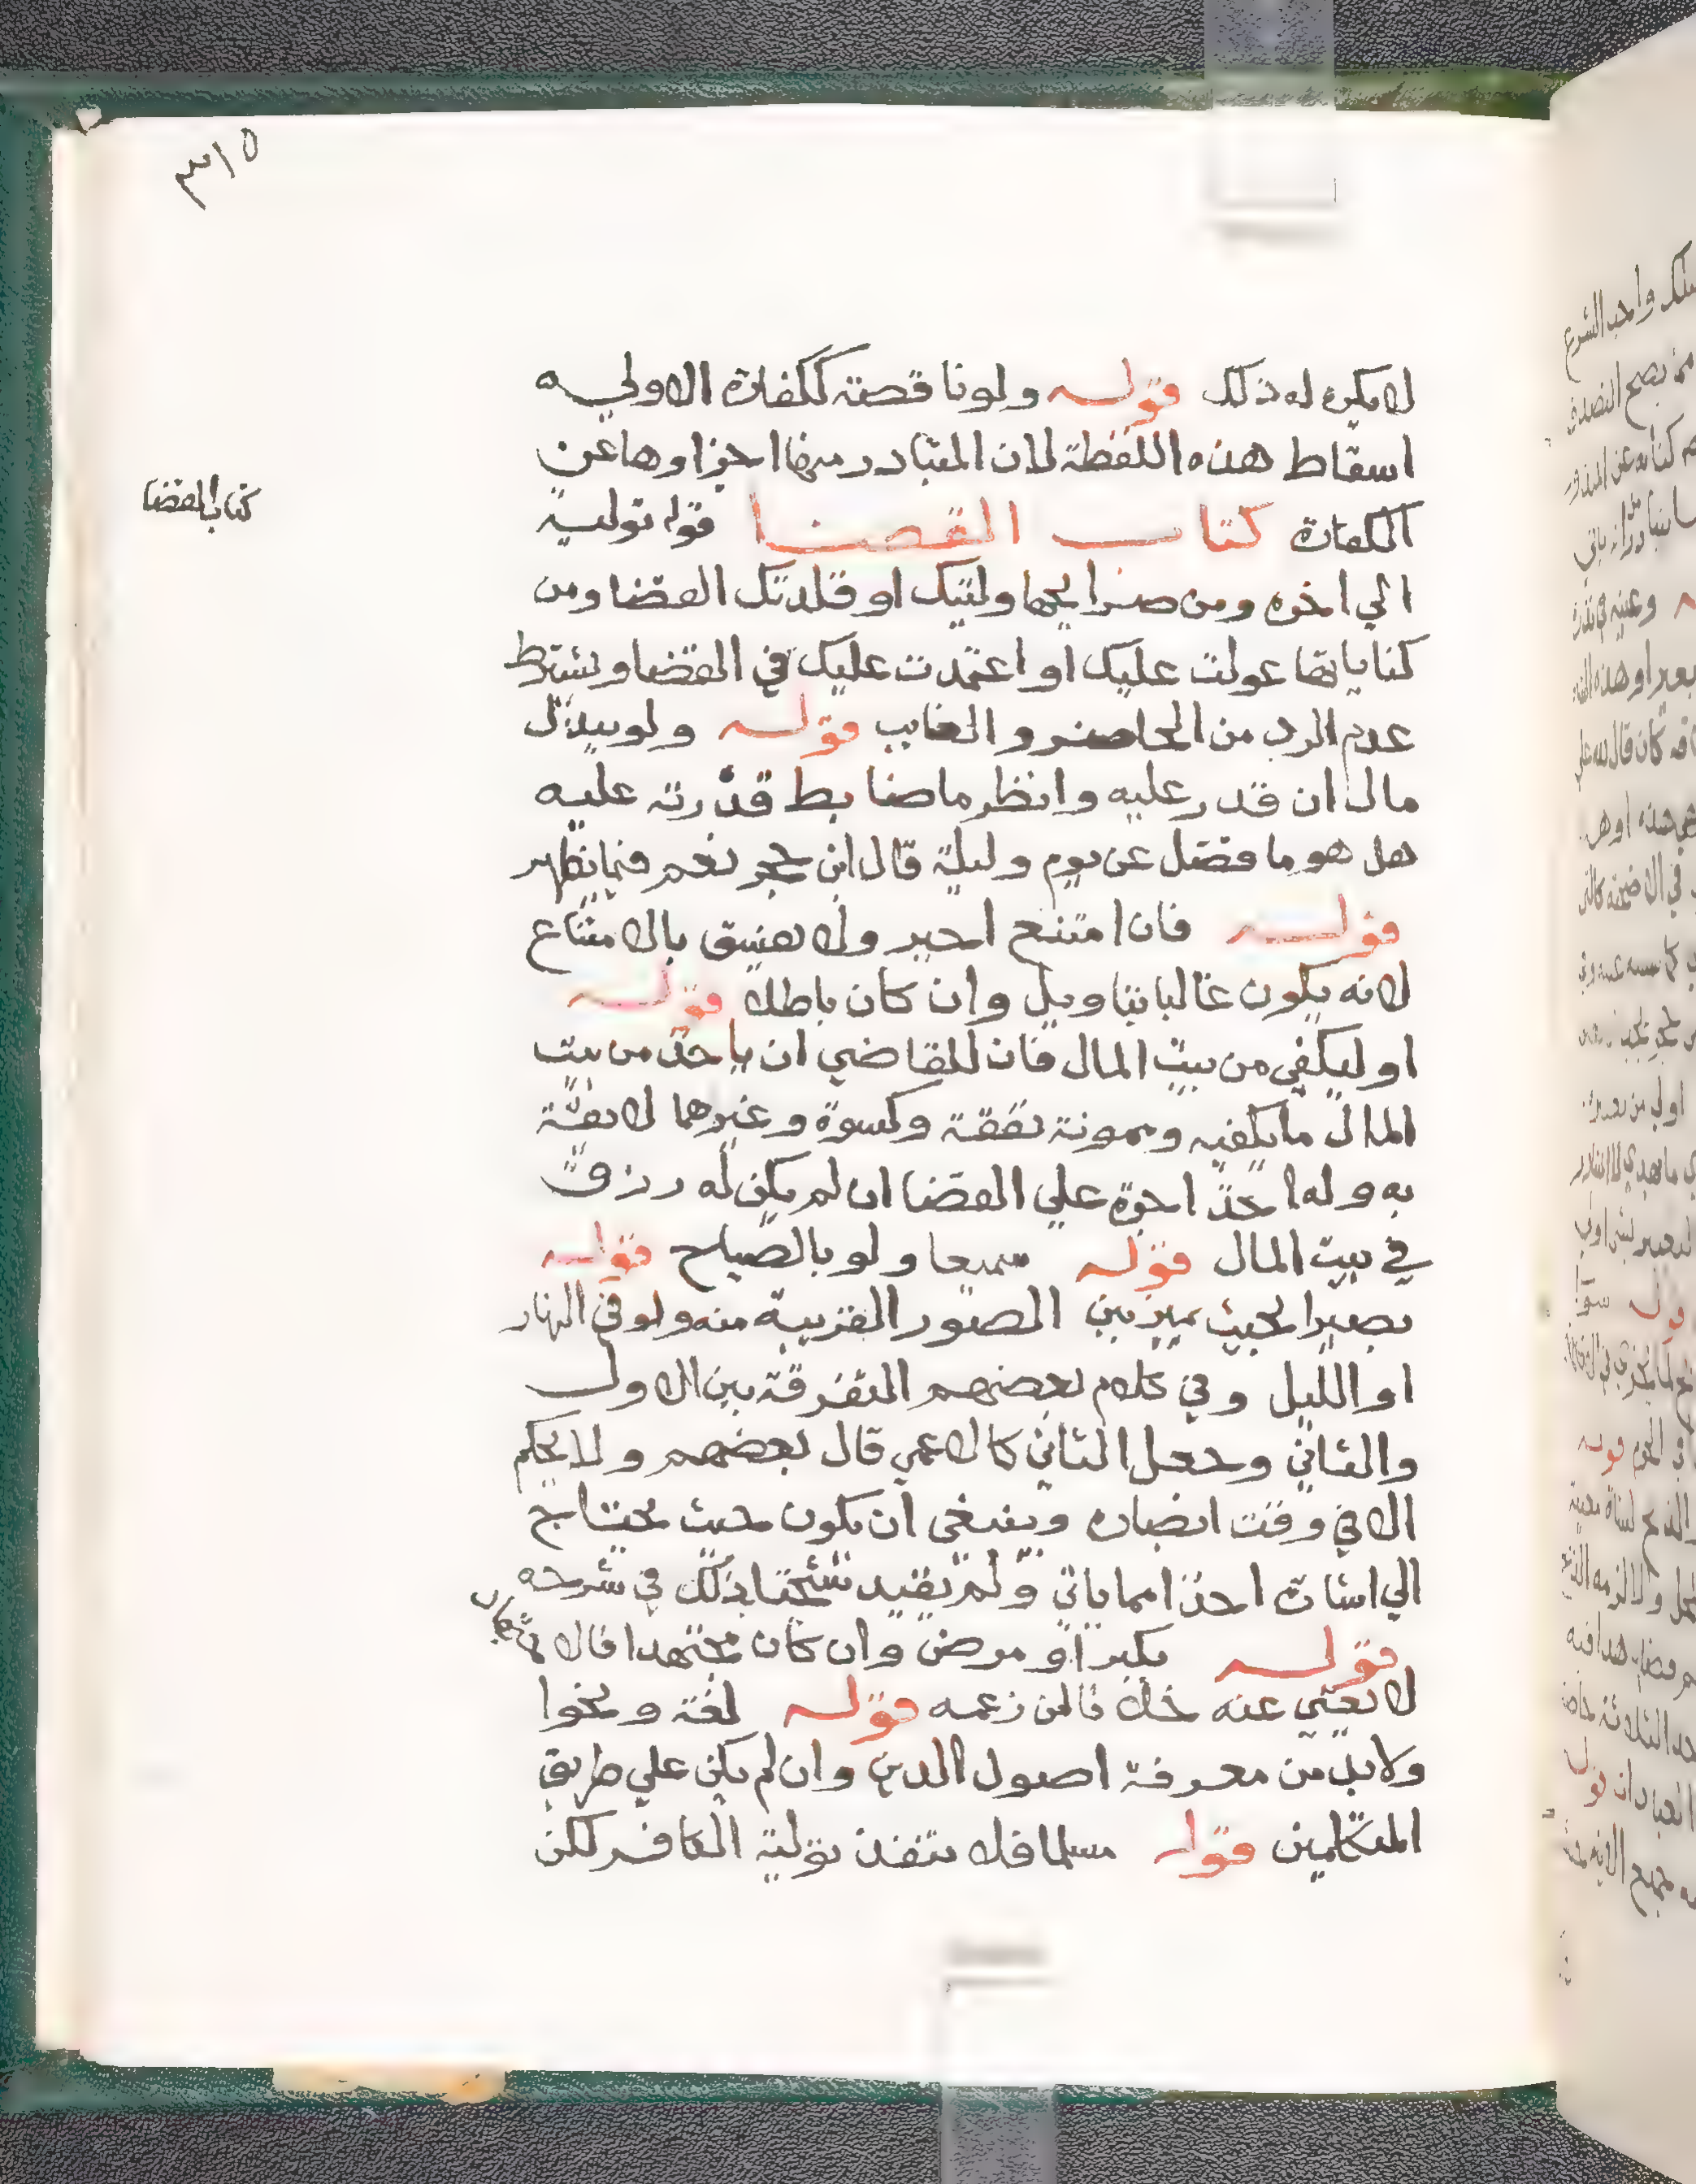 ٣١٥
لا يكره له ذلك قوله ولو ناقصة ككفارة الاولي
اسقاط هذه اللفظة لان المتبادر منها اجزاوها عن
الكفارة كتاب القضا قوله توليه
كتاب القضا
الي اخره ومن صرايحها وليتك او قلدتك القضا ومن
كناياتها عولت عليك او اعتمدت عليك في القضا ويشترط
عدم الرد من الحاضر والغايب قوله ولو ببذل
مال ان قدر عليه وانظر ما ضابط قدرته عليه
هل هو ما فضل عن يوم وليلة قال ابن حجر نعم فيما يظهر
قوله فان امتنع اجبر ولا يفسق بالامتناع
لانه يكون غالبا بتاويل وان كان باطلا قوله
او ليكفي من بيت المال فان للقاضي ان ياخذ من بيت
المال ما يكفيه وممونة نفقة وكسوة وغيرهما لايقة
به وله اخذ اجرة علي القضا ان لم يكن له رزق
في بيت المال قوله سميعا ولو بالصياح قوله
بصيرا بحيث يميز بين الصور القريبة منه ولو في النهار
او الليل وفي كلام بعضهم التفرقة بين الاول
والثاني وجعل الثاني كالاعمي قال بعضهم ولا يحكم
الا في وقت ابصاره وينبغي ان يكون حيث يحتاج
الي اثبات اخذا مما ياتي ولم يقيد شيخنا بذلك في شرحه
قوله بكبر او مرض وان كان مجتهدا قال
لا يغني عنه خلافا لمن زعمه قوله لغة ونحوا
ولابد من معرفة اصول الدين وان لم يكن علي طريق
المتكلمين قوله مسلما فلا تنفذ تولية الكافر لكن